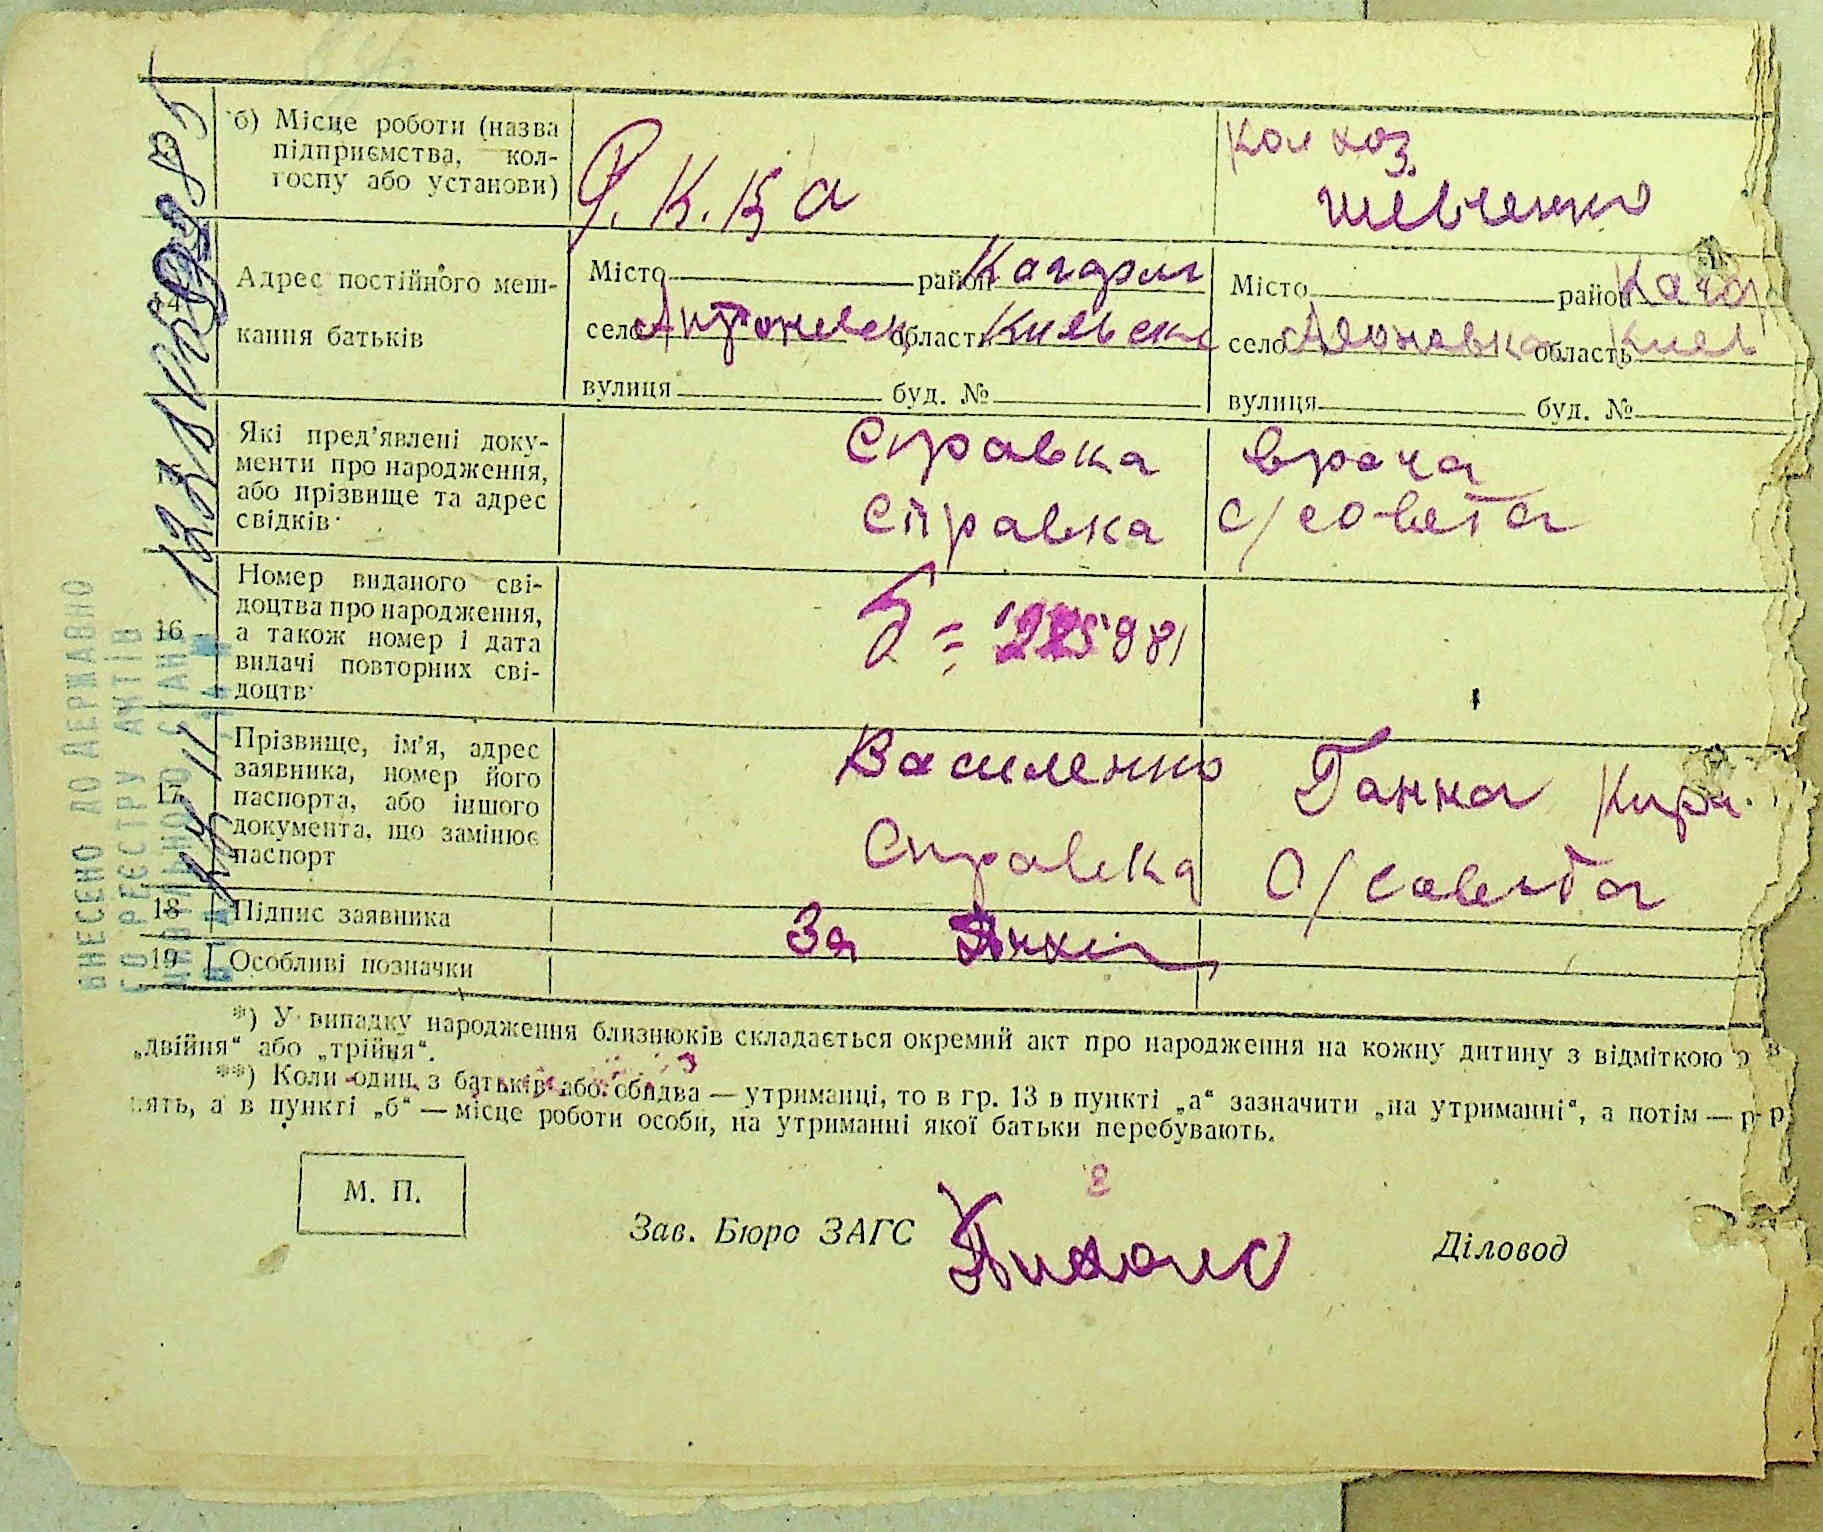 б) Місце роботи (назва
підприємства, кол-
госпу або установи)
Р.К.К.А
колхоз
Шевченко
14
Адрес постійного меш-
кання батьків
Місто район Кагарл
село область Київськ
вулиця буд. №
Місто район Кагар
село область Київ
вулиця буд. №
Які пред'явлені доку-
менти про народження,
або прізвище та адрес
свідків
Справка врача
Справка с/совета
16
Номер виданого сві-
доцтва про народження,
а також номер і дата
видачі повторних сві-
доцтв
981
17
Прізвище, ім'я, адрес
заявника, номер його
паспорта, або іншого
документа, що замінює
паспорт
Василенко Ганна
Справка с/совета
18 Підпис заявника
За
19 Особливі позначки
ВНЕСЕНО ДО ДЕРЖАВНО
ГО РЕЄСТРУ АКТІВ
ЦИВІЛЬНОГО СТАНУ
*) У випадку народження близнюків складається окремий акт про народження на кожну дитину з відміткою
„двійня“ або „трійня“.
**) Коли один з батьків або обидва — утриманці, то в гр. 13 в пункті „а“ зазначити „на утриманні“, а потім —
нять, а в пункті „б“ — місце роботи особи, на утриманні якої батьки перебувають.
М. П.
Зав. Бюро ЗАГС
Діловод